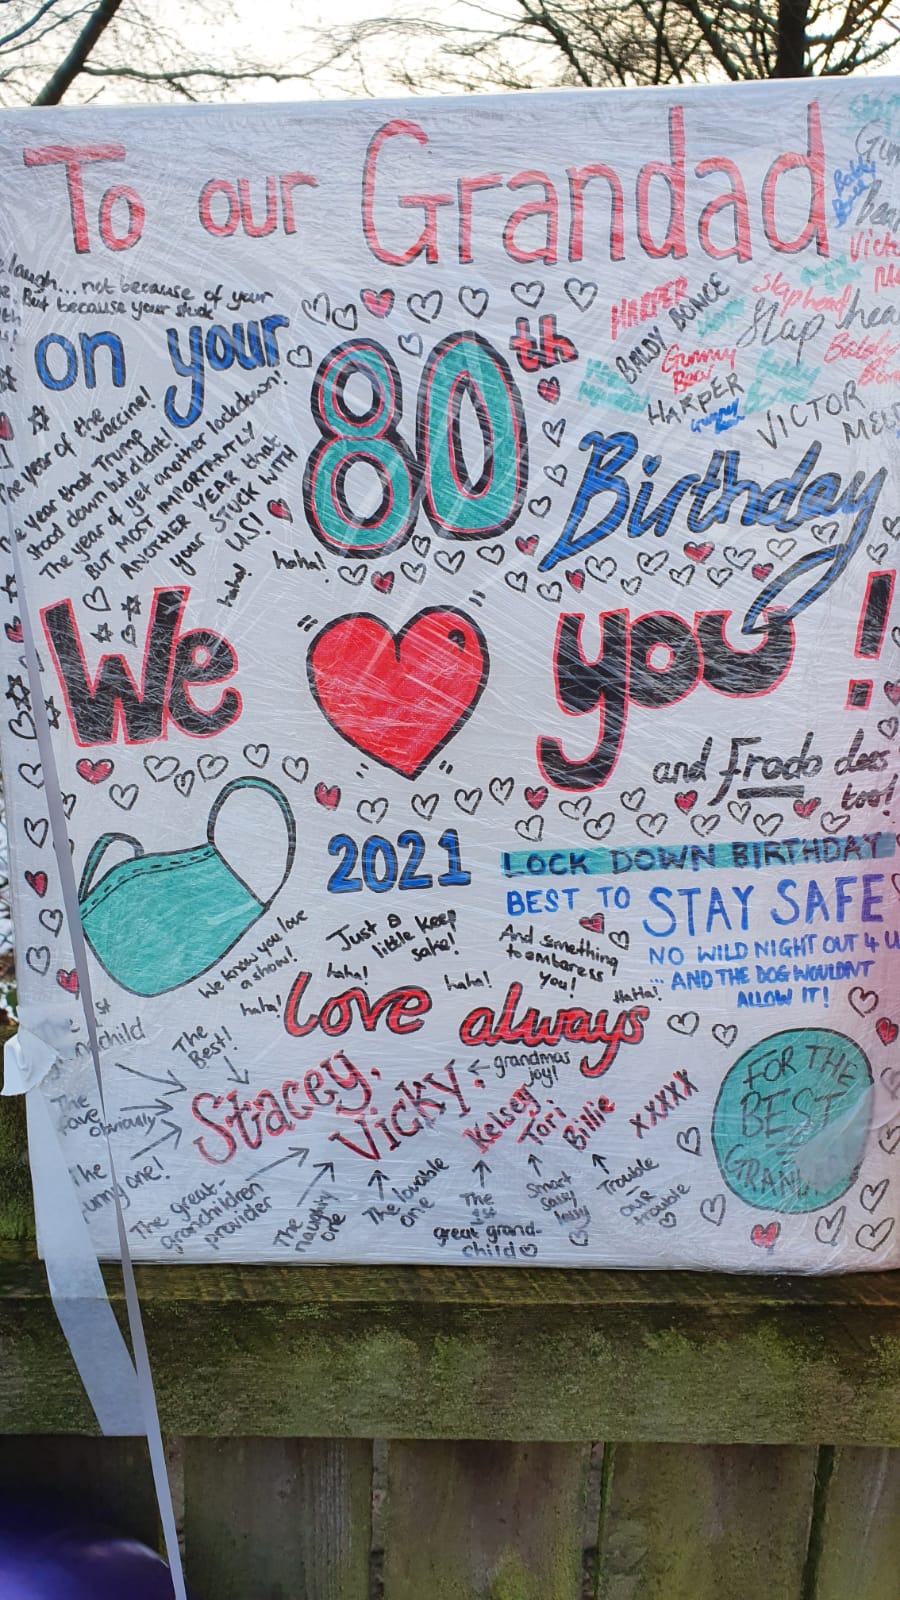 To our Grandad
laugh... not because of your
But because your stuck
on your
80th
Birthday
HARPER
BALDY BONCE
Slaphead
Slap head
Gummy
Bear
HARPER
VICTOR
The year of the
vaccine!
The year that Trump
stood down but didnt!
The year of yet another lockdown!
BUT MOST IMPORTANTLY
ANOTHER YEAR that
your STUCK WITH
US!
haha!
haha!
We you!
and Frodo does
too!
2021
LOCK DOWN BIRTHDAY
BEST TO STAY SAFE
NO WILD NIGHT OUT 4 U
... AND THE DOG WOULDNT
ALLOW IT!
We know you love
a show!
Just a
little keep
sake!
And something
to embaress
you!
haha!
haha!
haha!
HaHa!
love always
The 1st
grandchild
The
Best!
The
fave
Obviously
The
funny one!
Stacey,
Vicky,
grandmas
joy!
Kelsey
Tori
Billie
xxxxx
The great-
grandchildren
provider
The
naughty
one
The lovable
one
The
1st
great grand-
child
Smart
sassy
Trouble
our
trouble
FOR THE
BEST